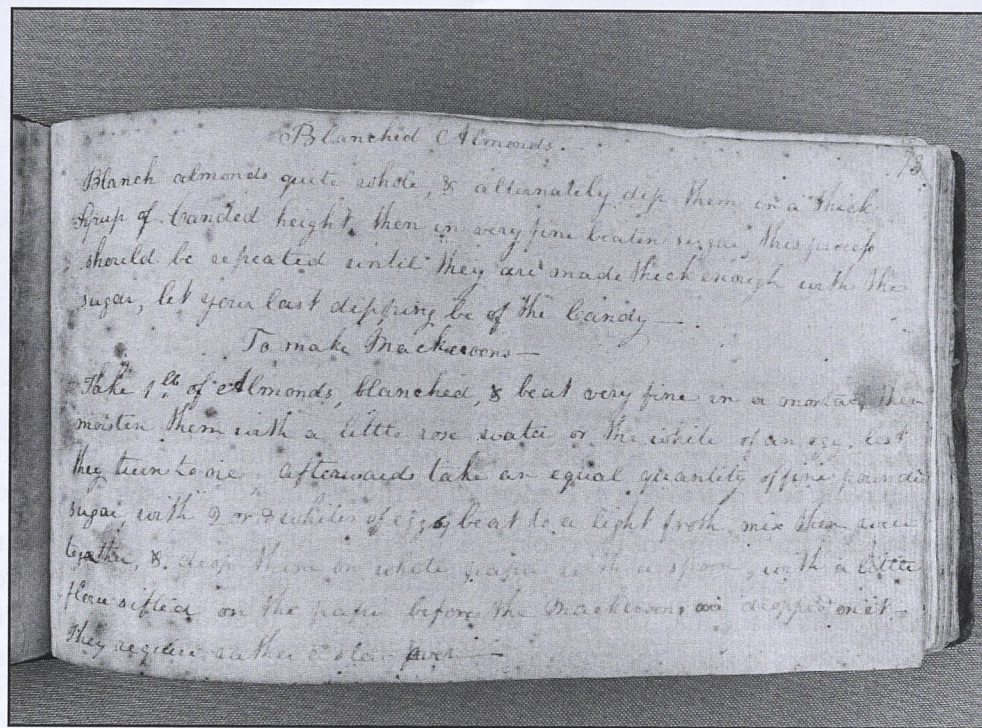 Blanched Almonds.
73
Blanch almonds quite whole, & alternately dip them in a thick
Syrup of Canded height, then in very fine beaten sugar, this process
should be repeated until they are made thick enough with the
sugar, let your last dipping be of the Candy—
To make Mackeroons—
Take 1 lb of Almonds, blanched, & beat very fine in a mortar, then
moisten them with a little rose water or the white of an egg, lest
they turn to oil, afterwards take an equal quantity of fine pounded
sugar, with 2 or 3 whites of eggs beat to a light froth, mix them well
together, & drop them on white paper with a spoon, with a little
flour sifted on the paper before the Mackeroons are dropped on it—
They require rather a slow oven—